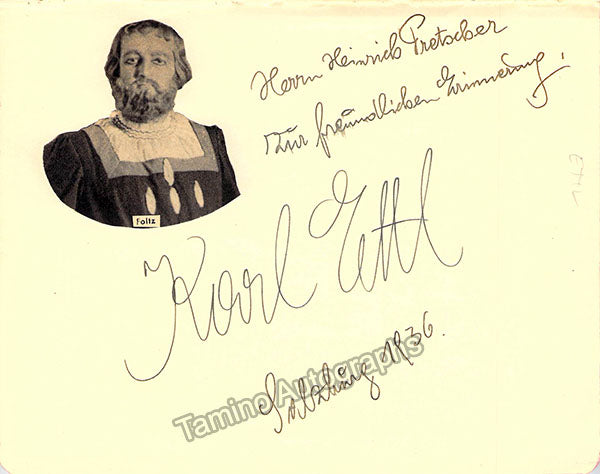 Herrn Heinrich Pretscher
zur freundlichen Erinnerung!
Foltz
Karl Ettl
Salzburg 1936.
Tamino Autographs